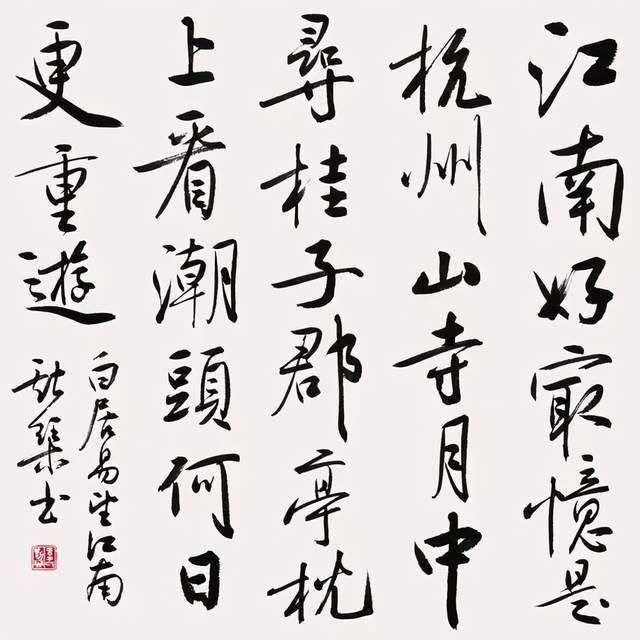 江南好冣憶是
杭州山寺月中
尋桂子郡亭枕
上看潮頭何日
更重遊
白居易望江南
书